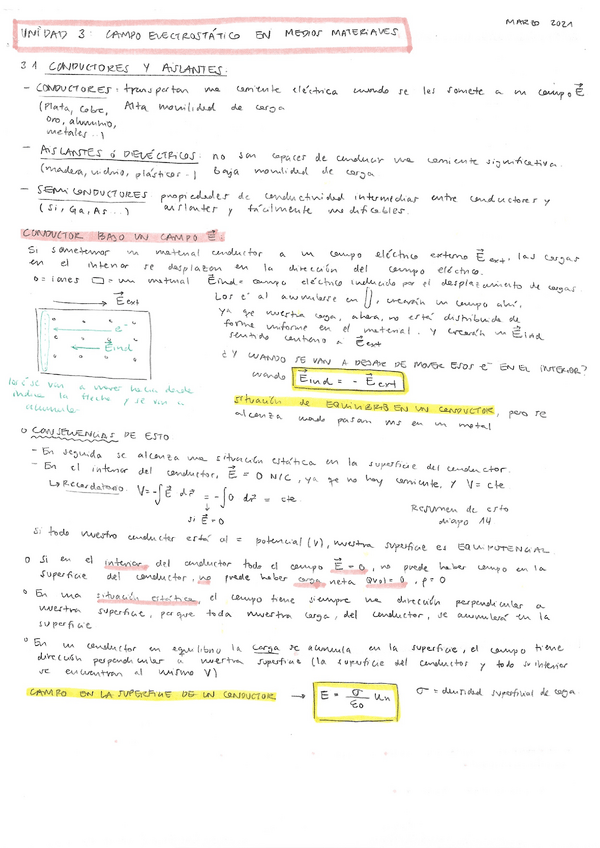 UNIDAD 3: CAMPO ELECTROSTÁTICO EN MEDIOS MATERIALES
MARZO 2021
3.1 CONDUCTORES Y AISLANTES:
- CONDUCTORES: transportan una corriente eléctrica cuando se les somete a un campo E⃗
(Plata, Cobre, Alta movilidad de carga
oro, aluminio,
metales...)
- AISLANTES Ó DIELÉCTRICOS: no son capaces de conducir una corriente significativa.
(madera, vidrio, plásticos...) baja movilidad de carga
- SEMICONDUCTORES propiedades de conductividad intermedias entre conductores y
(Si, Ga, As...) aislantes y fácilmente modificables.
CONDUCTOR BAJO UN CAMPO E⃗:
Si sometemos un material conductor a un campo eléctrico externo E⃗ext, las cargas
en el interior se desplazan en la dirección del campo eléctrico.
o = iones ▭ = un material E⃗ind = campo eléctrico inducido por el desplazamiento de cargas.
E⃗ext
Los e⁻ al acumularse en, crearán un campo ahí,
ya que nuestra carga, ahora, no está distribuida de
forme uniforme en el material. Y crearán un E⃗ind
sentido contrario a E⃗ext
e⁻
E⃗ind
¿Y CUANDO SE VAN A DEJAR DE MOVER ESOS e⁻ EN EL INTERIOR?
cuando E⃗ind = - E⃗ext
los e⁻ se van a mover hacia donde
indica la flecha y se van a
acumular
situación de EQUILIBRIO EN UN CONDUCTOR, pero se
alcanza cuando pasan ms en un metal
o CONSECUENCIAS DE ESTO
- En seguida se alcanza una situación estática en la superficie del conductor.
- En el interior del conductor, E⃗ = 0 N/C, ya que no hay corriente, y V = cte
↳ Recordatorio. V = -∫E⃗ dr⃗ = -∫0 dr⃗ = cte.
si E⃗ = 0
Resumen de esto
diapo 14
Si todo nuestro conductor está al = potencial (V), nuestra superficie es EQUIPOTENCIAL.
o Si en el interior del conductor todo el campo E⃗ = 0, no puede haber campo en la
superficie del conductor, no puede haber carga neta Qvol = 0, ρ = 0
o En una situación estática, el campo tiene siempre una dirección perpendicular a
nuestra superficie, porque toda nuestra carga, del conductor, se acumulará en la
superficie
o En un conductor en equilibrio la carga se acumula en la superficie, el campo tiene
dirección perpendicular a nuestra superficie (la superficie del conductor y todo su interior
se encuentran al mismo V)
CAMPO EN LA SUPERFICIE DE UN CONDUCTOR → E = σ/ε0 un σ = densidad superficial de carga